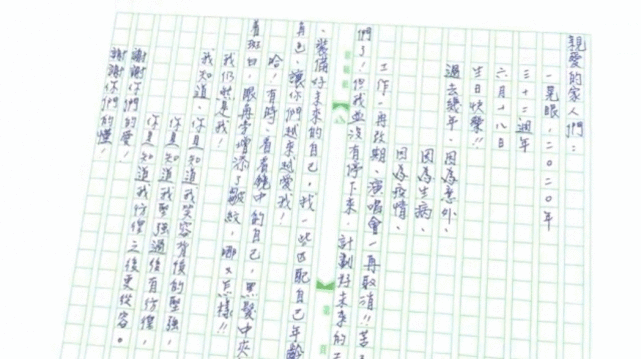 親愛的家人們：
一晃眼，二〇二〇年
三十三週年
六月十八日
生日快樂!!
過去幾年，因為意外、
因為生病、
因為疫情、
工作一再改期、演唱會一再取消!!苦了
們了！但我並沒有停下來，計劃好未來的
、裝備好未來的自己，找一些匹配自己年齡
角色，讓你們越來越愛我！
哈！有時，看看鏡中的自己，黑髮中夾
著斑白，眼角多增添皺紋，哪又怎樣!!
我仍然是我！
我知道，你真知道我笑容背後的堅強，
你真知道我堅強過後有彷徨，
你真知道我彷徨之後更從容。
謝謝你們的愛！
謝謝你們的懂！